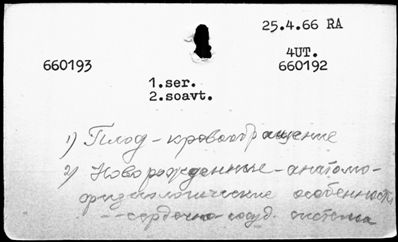 25.4.66 RA
4UT.
660193 660192
1.ser.
2.soavt.
1) Плод - кровообращение
2) Новорожденные - анатомо-
физиологические особенности
-- сердечно-сосуд. система